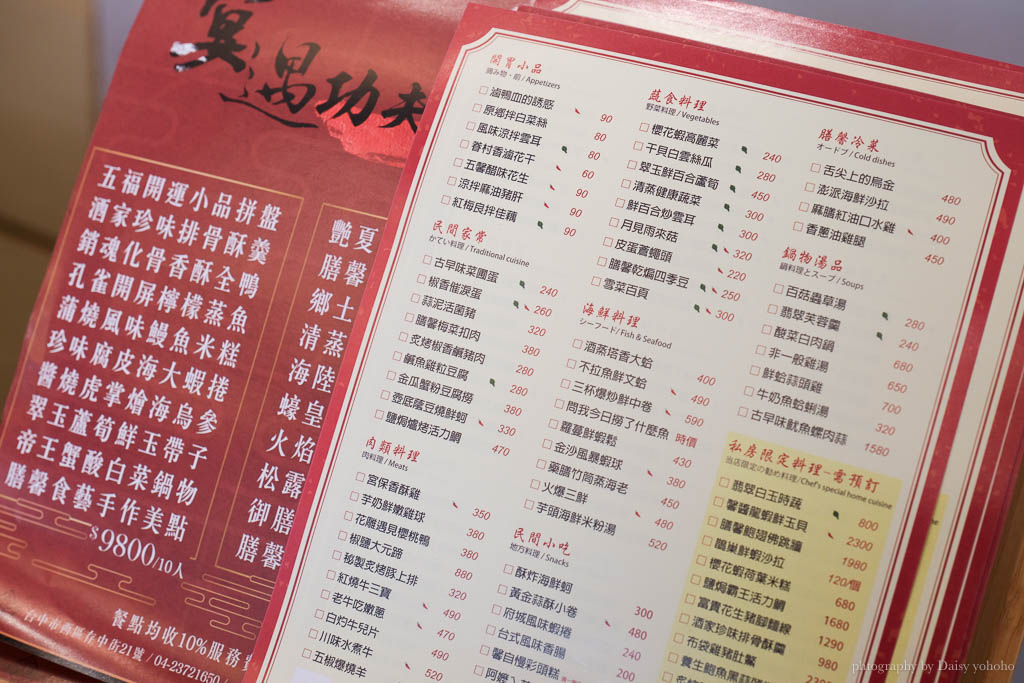 宴遇功夫
五福開運小品拼盤
酒家珍味排骨酥羹
銷魂化骨香酥全鴨
孔雀開屏檸檬蒸魚
蒲燒風味鰻魚米糕
珍味腐皮海大蝦捲
醬燒虎掌燴海烏參
翠玉蘆筍鮮玉帶子
帝王蟹酸白菜鍋物
膳馨食藝手作美點
$9800/10人
餐點均收10%服務
台中市西區存中街21號 / 04-23721650
艷夏
膳馨
鄉土
清蒸
海陸
蠔皇
火焰
松露
御膳
膳馨
開胃小品
摘み物・前 / Appetizers
滷鴨血的誘惑 90
原鄉拌白菜絲 80
風味涼拌雲耳 80
眷村香滷花干 60
五馨醋味花生 90
涼拌麻油豬肝 90
紅梅良拌佳藕 90
民間家常
かてい料理 / Traditional cuisine
古早味菜圃蛋 240
椒香催淚蛋 260
蒜泥活菌豬 320
膳馨梅菜扣肉 380
炙烤椒香鹹豬肉 280
鹹魚雞粒豆腐 280
金瓜蟹粉豆腐撈 380
壺底蔭豆燒鮮蚵 330
鹽焗爐烤活力鯛 470
肉類料理
肉料理 / Meats
宮保香酥雞 350
芋奶鮮嫩雞球 380
花雕遇見櫻桃鴨 380
椒鹽大元蹄 880
秘製炙烤豚上排 320
紅燒牛三寶 490
老牛吃嫩蔥 470
白灼牛兒片 490
川味水煮牛 520
五椒爆燒羊
蔬食料理
野菜料理 / Vegetables
櫻花蝦高麗菜 240
干貝白雲絲瓜 280
翠玉鮮百合蘆筍 450
清蒸健康蔬菜 300
鮮百合炒雲耳 300
月見雨來菇 320
皮蛋蒼蠅頭 220
膳馨乾煸四季豆 250
雪菜百頁 300
海鮮料理
シーフード / Fish & Seafood
酒蒸塔香大蛤 400
不拉魚鮮文蛤 490
三杯爆炒鮮中卷 590
問我今日撈了什麼魚 時價
蘿蔓鮮蝦鬆 430
金沙風暴蝦球 380
藥膳竹筒蒸海老 450
火爆三鮮 480
芋頭海鮮米粉湯 520
民間小吃
地方料理 / Snacks
酥炸海鮮蚵 300
黃金蒜酥小卷 480
府城風味蝦捲 240
台式風味香腸 200
馨自慢彩頭糕
膳馨冷菜
オードブ / Cold dishes
舌尖上的烏金 480
澎派海鮮沙拉 490
麻膳紅油口水雞 400
香蔥油雞腿 450
鍋物湯品
鍋料理とスープ / Soups
百菇蟲草湯 280
翡翠芙蓉羹 240
酸菜白肉鍋 680
非一般雞湯 650
鮮蛤蒜頭雞 700
牛奶魚蛤蜊湯 420
古早味魷魚螺肉蒜 1580
私房限定料理-需預訂
当店限定の勧め料理 / Chef's special home cuisine
翡翠白玉時蔬 800
馨醬龍蝦鮮玉貝 2300
膳馨鮑翅佛跳牆 1980
鵲巢鮮蝦沙拉 120/個
櫻花蝦荷葉米糕 680
鹽焗霸王活力鯛 1680
富貴花生豬腳麵線 1290
酒家珍味排骨酥羹 980
布袋雞豬肚鱉 2300
養生鮑魚黑蒜
photography by Daisy yohoho